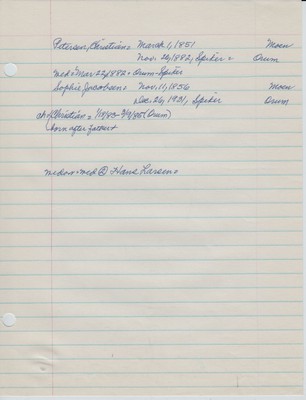 Petersen, Christian = March 1, 1851 Moen
Nov. 20, 1882, Spiker = Drum
med = Mar. 22, 1882 = Drum-Spiker
Sophie Jacobsen = Nov. 11, 1856 Moen
Dec. 26, 1921, Spiker Drum
ch = Christian = (Drum)
born after father
widow = med ② Hans Larsen =